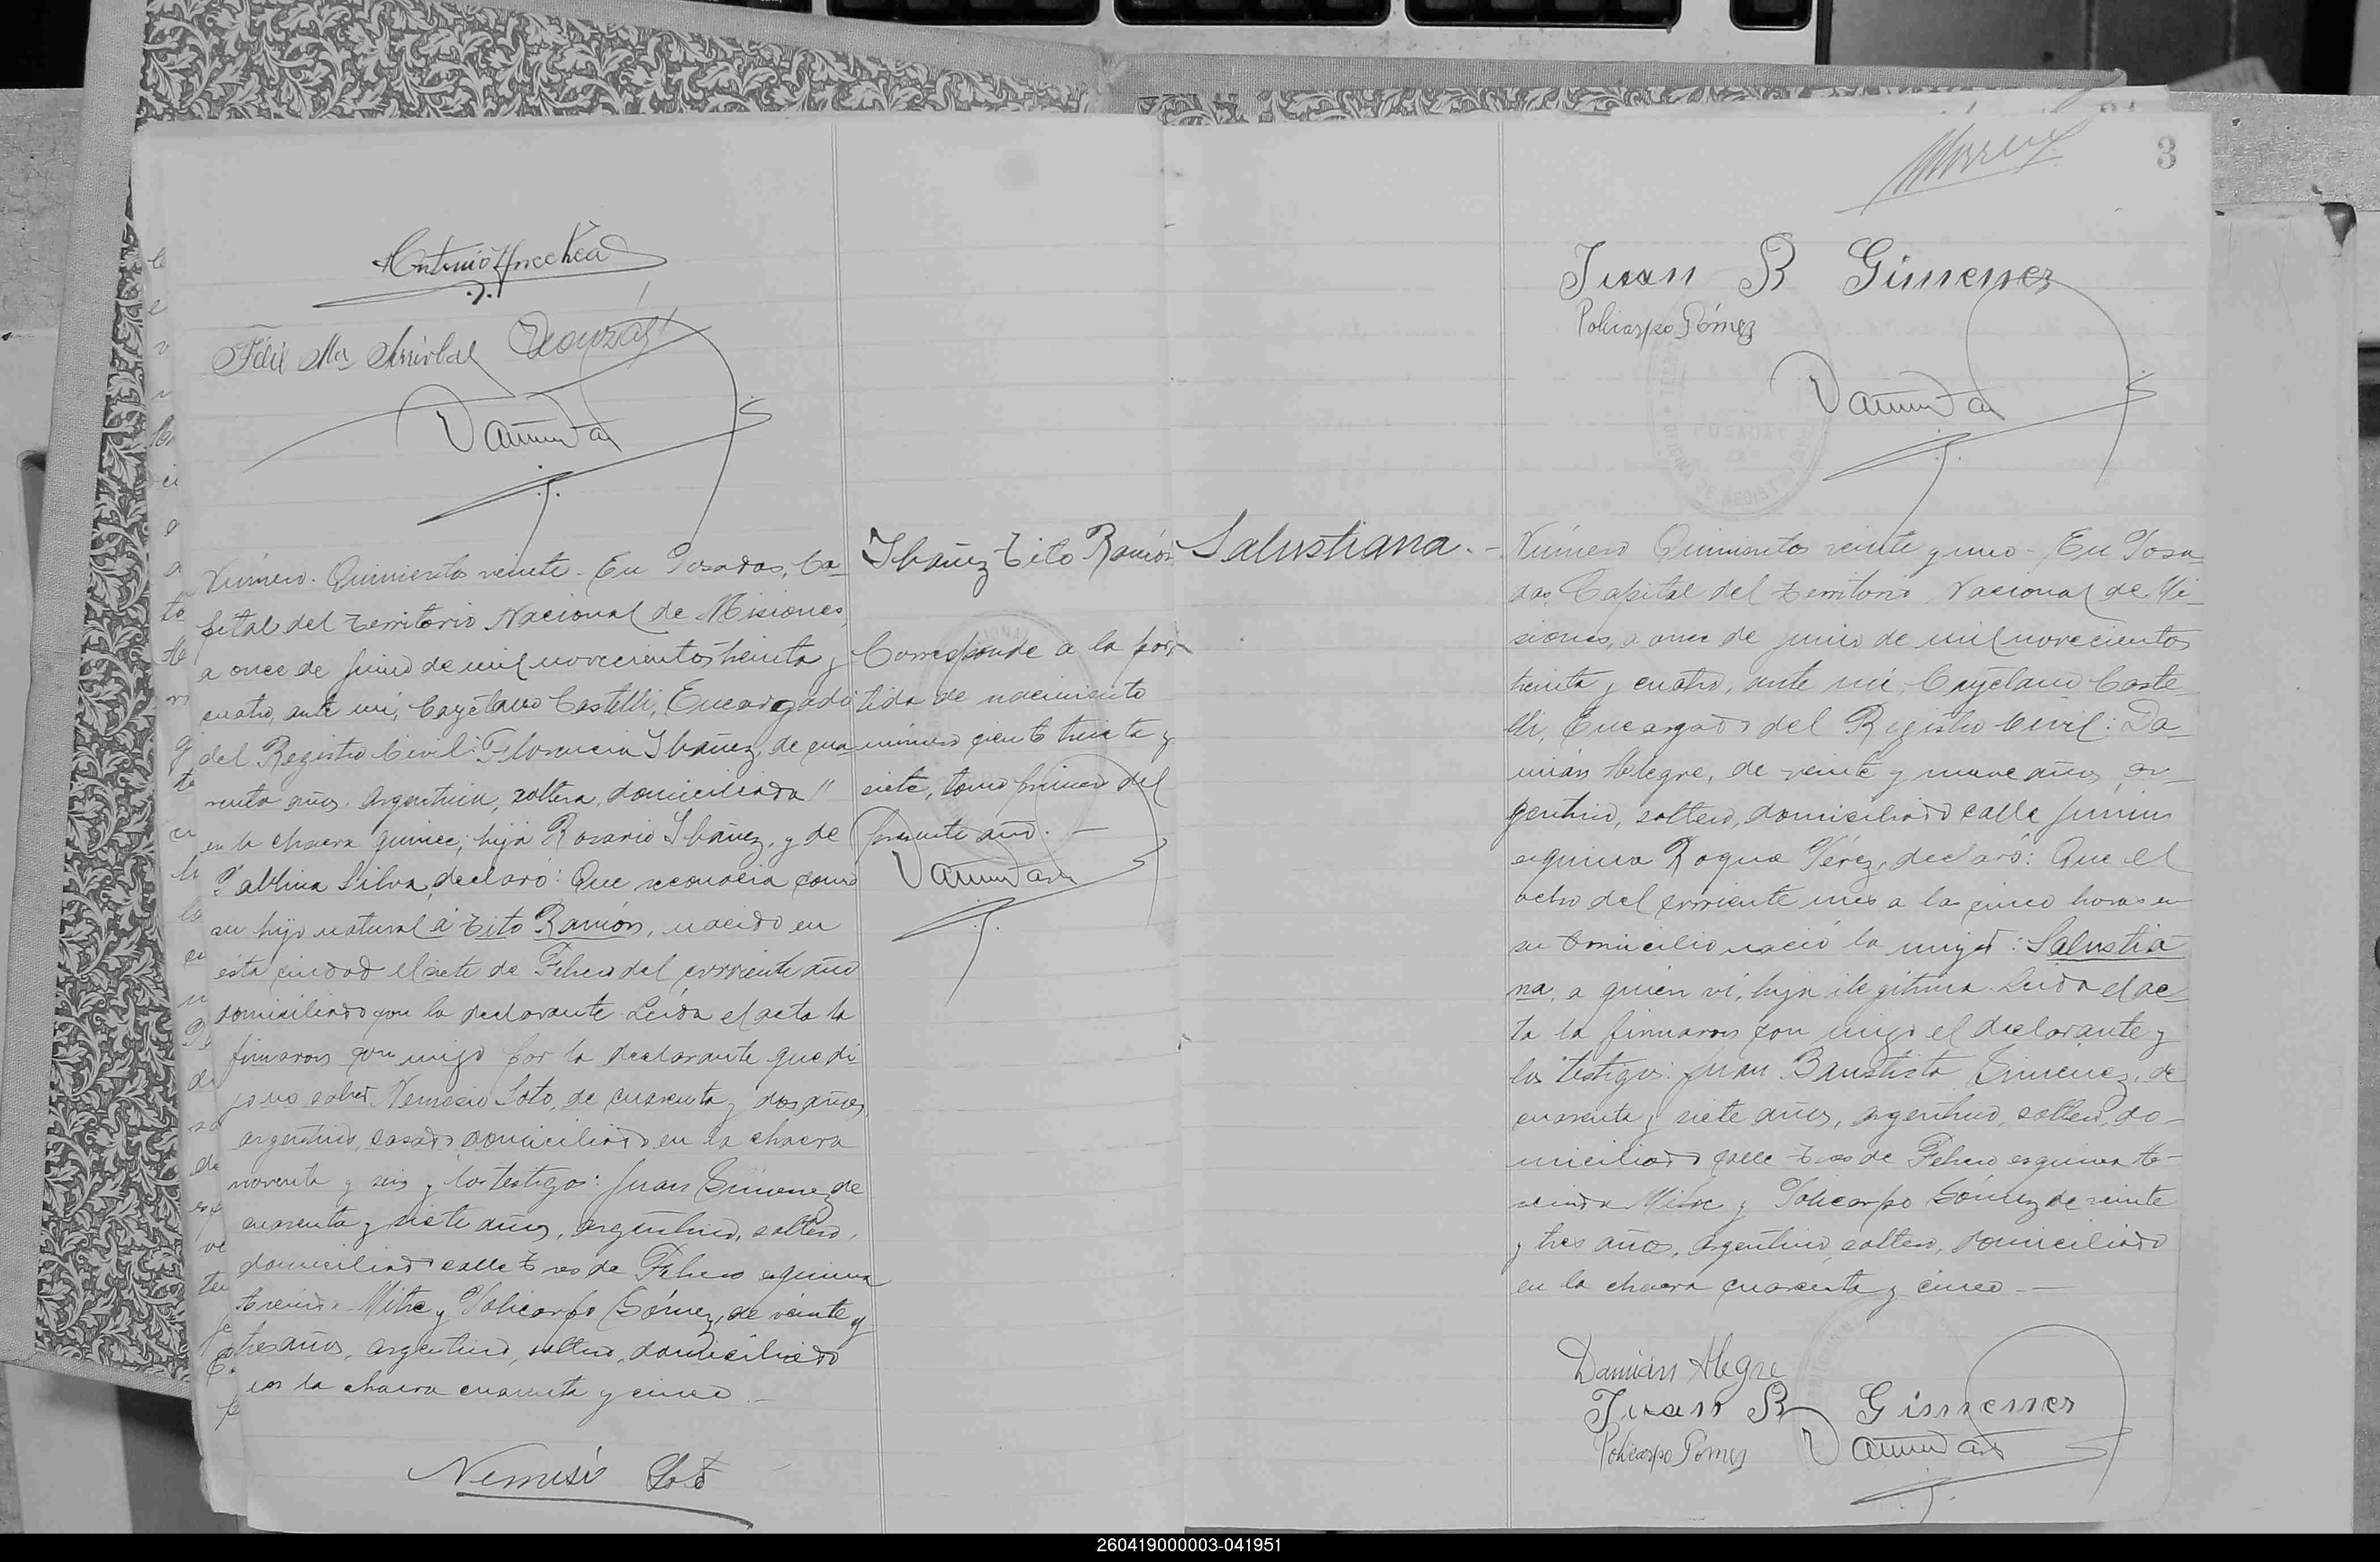 Número Quinientos veinte - En Posadas, Ca-
pital del Territorio Nacional de Misiones,
a once de junio de mil novecientos treinta y
cuatro, ante mí, Cayetano Castelli, Encargado
del Registro Civil: Florencia Ibañez, de cua-
renta años, argentina, soltera, domiciliada
en la chacra quince, hija Rosario Ibáñez, y de
Silva, declaró: Que reconocía como
su hijo natural a Tito Ramón, nacido en
ésta ciudad el siete de Febrero del corriente año
domiciliado con la declarante. Leída el acta la
firmaron con migo por la declarante que di-
jo no saber, Nemesio Soto, de cuarenta y dos años,
argentino, casado domiciliado en la chacra
noventa y seis y los testigos: Juan Gimenez de
cuarenta y siete años, argentino, soltero,
domiciliado calle Tres de Febrero esquina
Avenida Mitre y Policarpo Gómez, de veinte y
tres años, argentino, soltero, domiciliado
en la chacra cuarenta y cinco. -
Nemesio Soto
Ibañez Tito Ramón
Corresponde a la par-
tida de nacimiento
número ciento treinta y
siete, tomo primero del
presente año. -
3
Juan B Gimenez
Policarpo Gómez
Salustiana. -
Número Quinientos veinte y uno - En Posa-
das, Capital del Territorio Nacional de Mi-
siones, a once de junio de mil novecientos
treinta y cuatro, ante mí, Cayetano Caste-
lli, Encargado del Registro Civil: Da-
mián Alegre, de veinte y nueve años, ar-
gentino, soltero, domiciliado calle Junin
esquina Roque Pérez, declaró: Que el
ocho del corriente mes a las cinco horas en
su domicilio nació la mujer: Salustia-
na, a quien ví, hija ilegítima. Leida el ac-
ta la firmaron con migo el declarante y
los testigos: Juan Bautista Gimenez, de
cuarenta y siete años, argentino, soltero, do-
miciliado calle Tres de Febrero esquina A-
venida Mitre y Policarpo Gómez de veinte
y tres años, argentino, soltero, domiciliado
en la chacra cuarenta y cinco. -
Damián Alegre
Juan B Gimenez
Policarpo Gómez
260419000003-041951